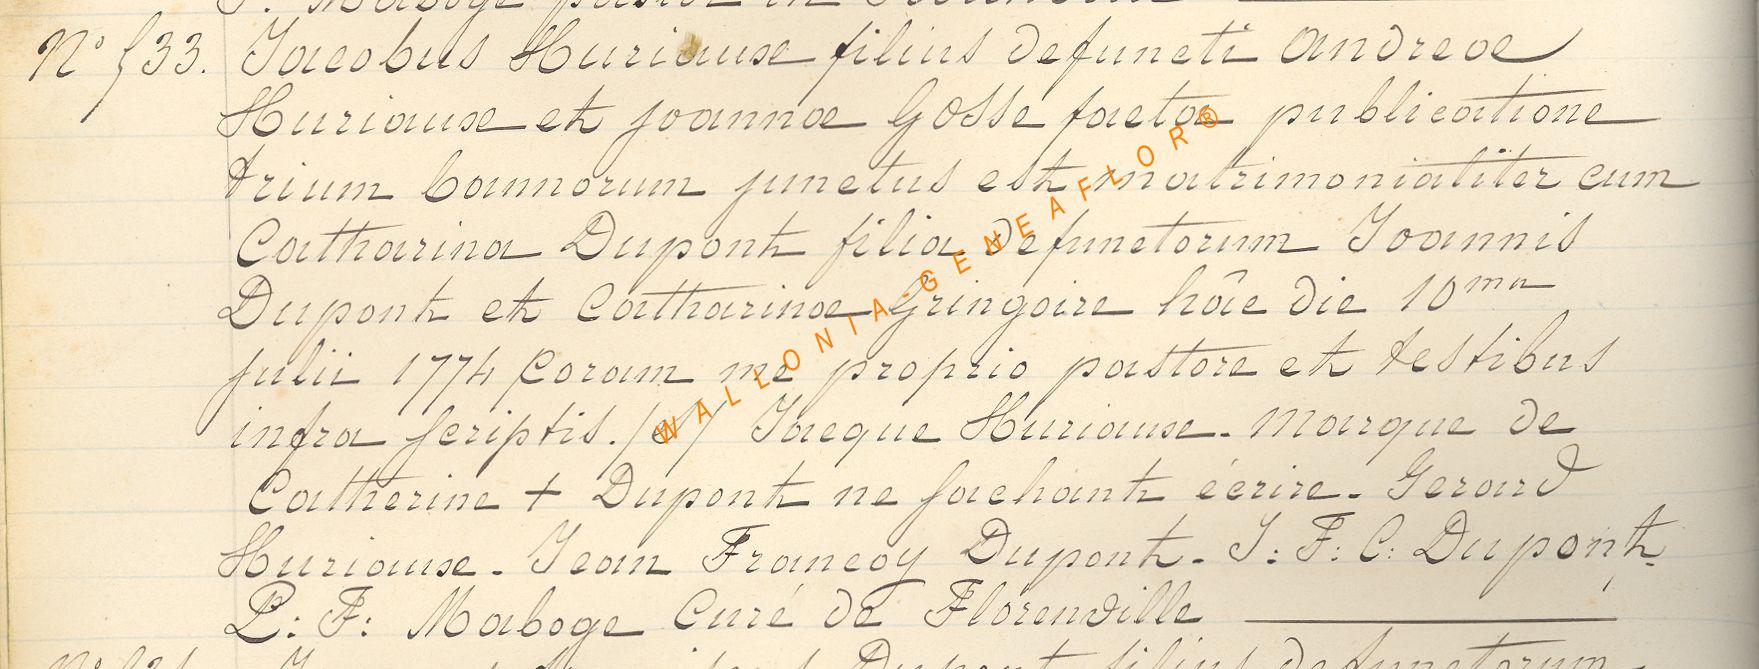 N° 533. Jacobus Huriaux filius defuncti Andreæ
Huriaux et joannæ Gosse facta publicatione
trium bannorum junctus est matrimonialiter cum
Catharina Dupont filia defunctorum Joannis
Dupont et Catharinæ Gringoire hâc die 10ma
julii 1774 Coram me proprio pastore et testibus
infra scriptis. /s/ Jacque Huriaux. Marque de
Catherine + Dupont ne sachant écrire. Gerard
Huriaux. Jean Françoy Dupont. J: F: C: Dupont.
P: F: Maboge Curé de Florenville
WALLONIA-GENEAFLOR®